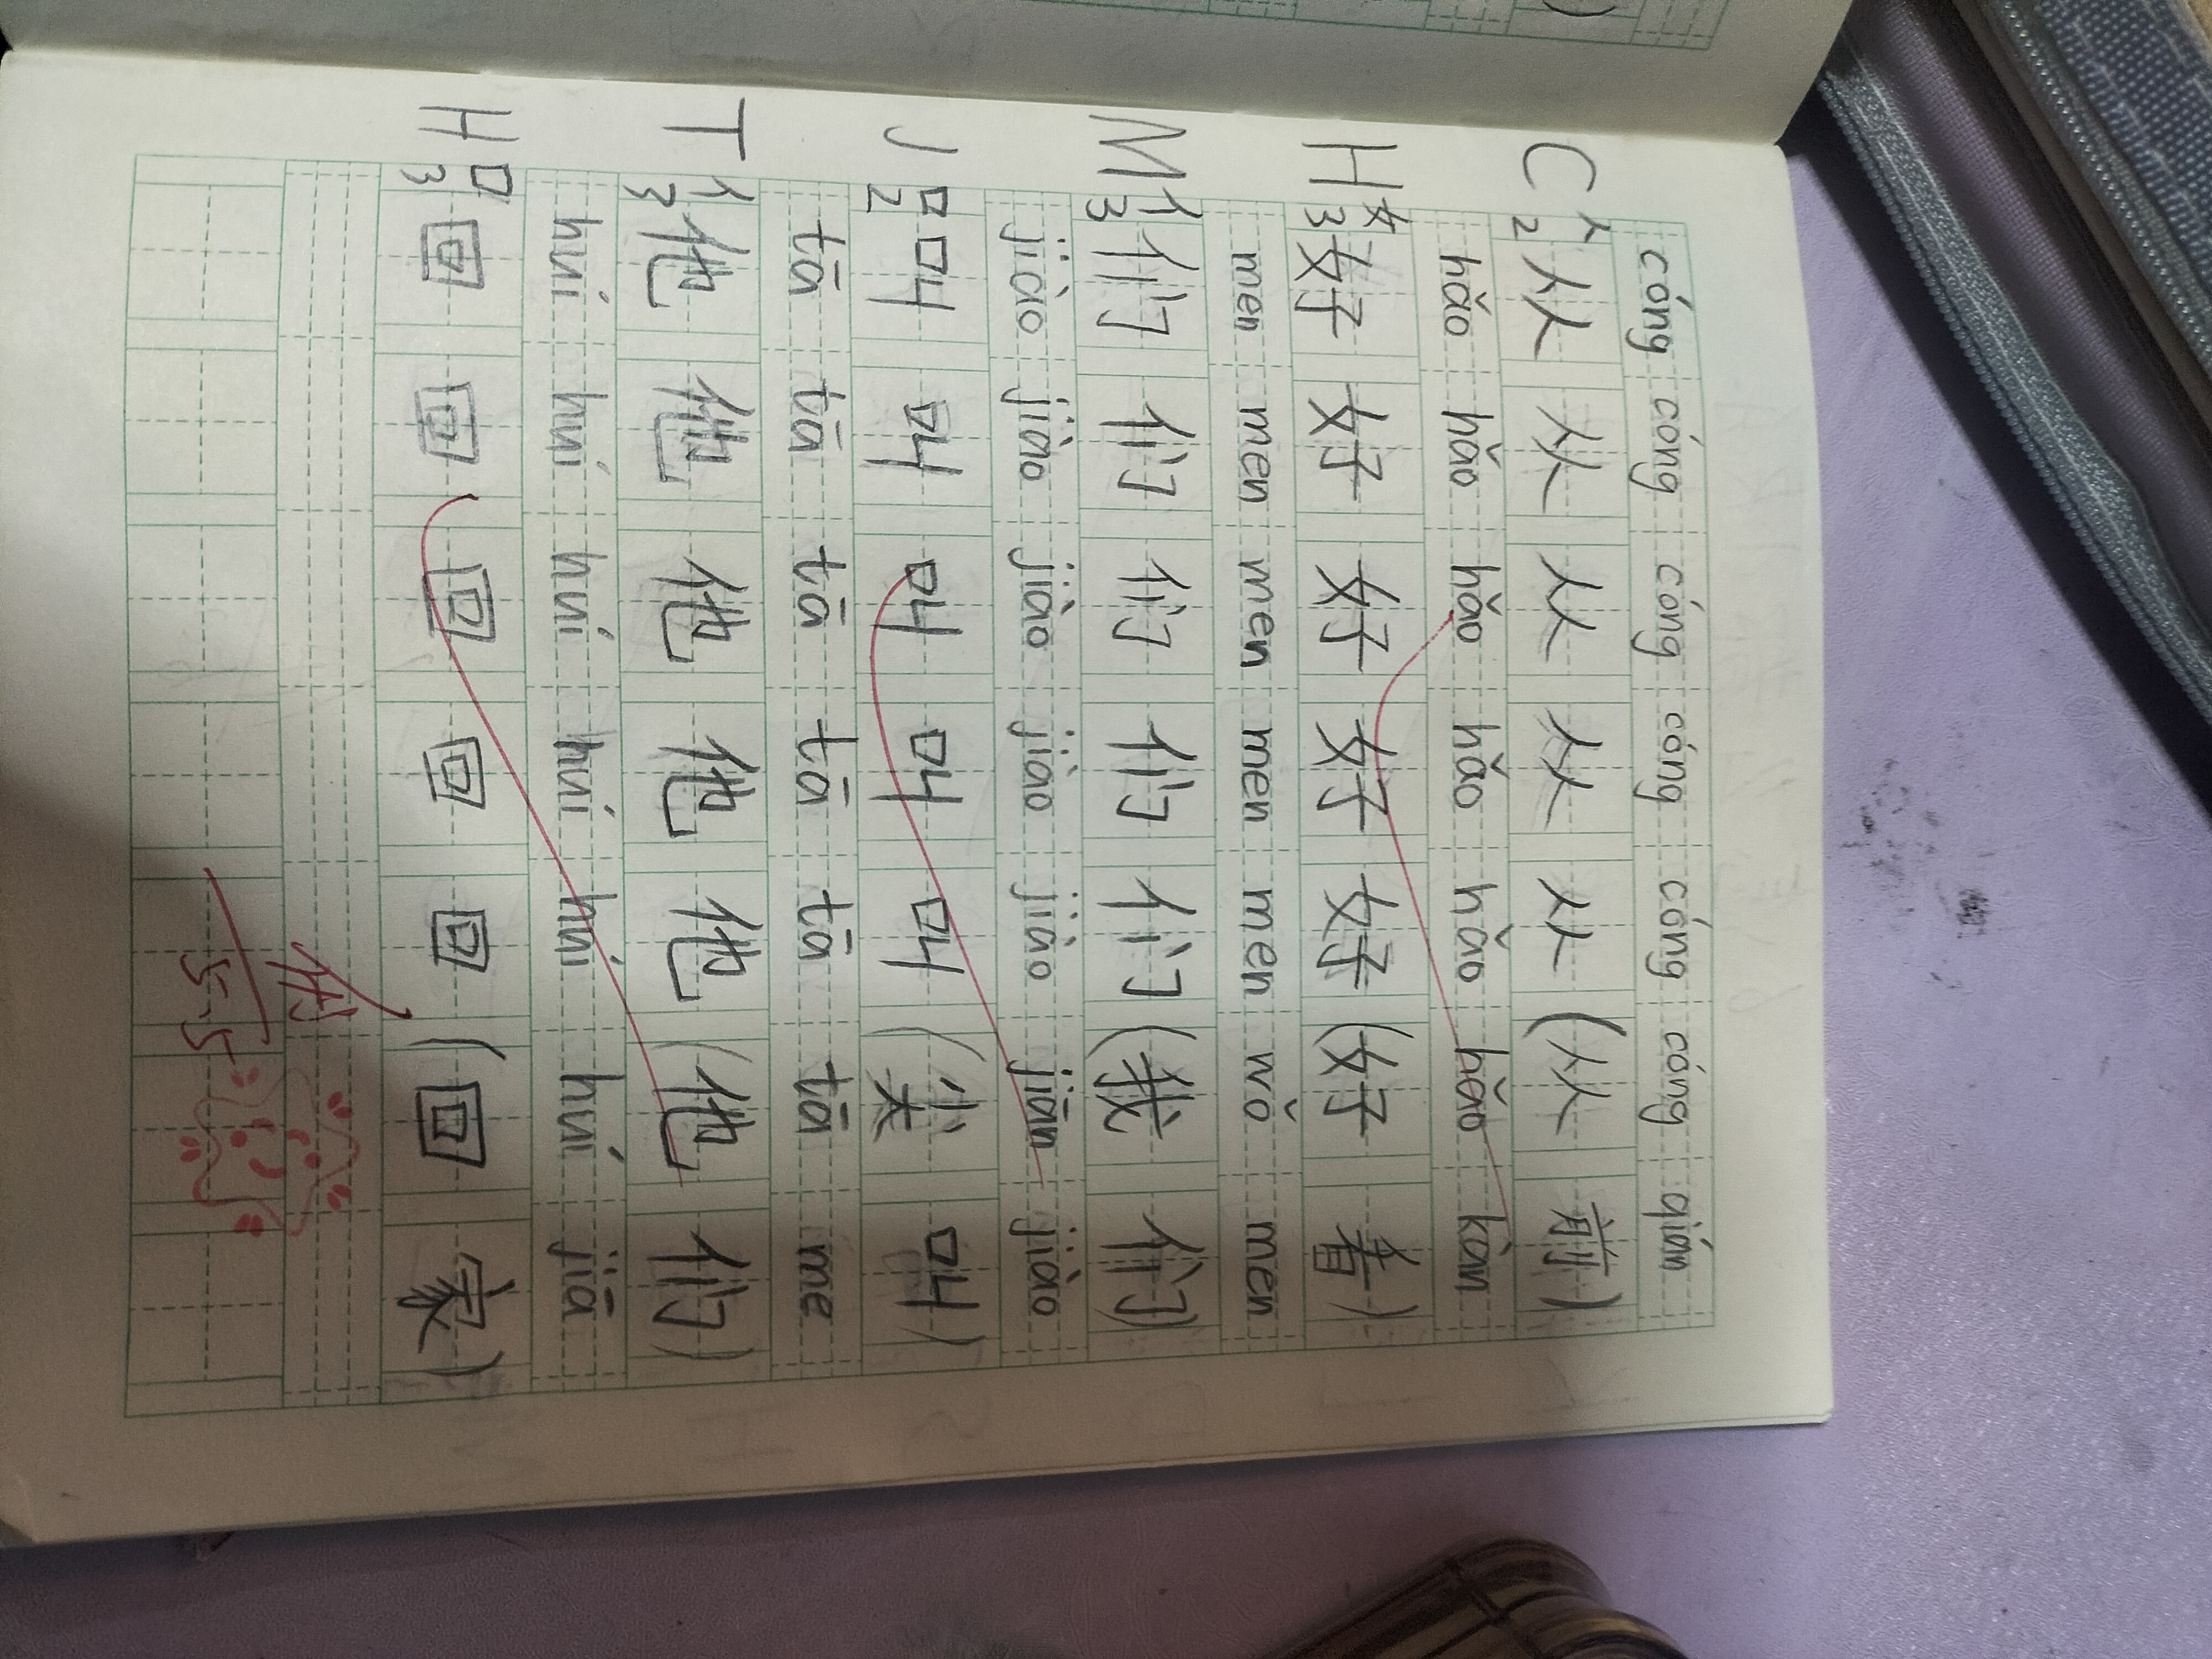 cóng cóng cóng cóng cóng cóng qián
C 人 2 从 从 从 从 从 (从 前)
hǎo hǎo hǎo hǎo hǎo hǎo kàn
H 女 3 好 好 好 好 好 (好 看)
men men men men men wǒ men
M 亻 3 们 们 们 们 们 (我 们)
jiào jiào jiào jiào jiào jiān jiào
J 口 2 叫 叫 叫 叫 叫 (尖 叫)
tā tā tā tā tā tā me
T 亻 3 他 他 他 他 他 (他 们)
huí huí huí huí huí huí jiā
H 囗 3 回 回 回 回 回 (回 家)
优
5.5